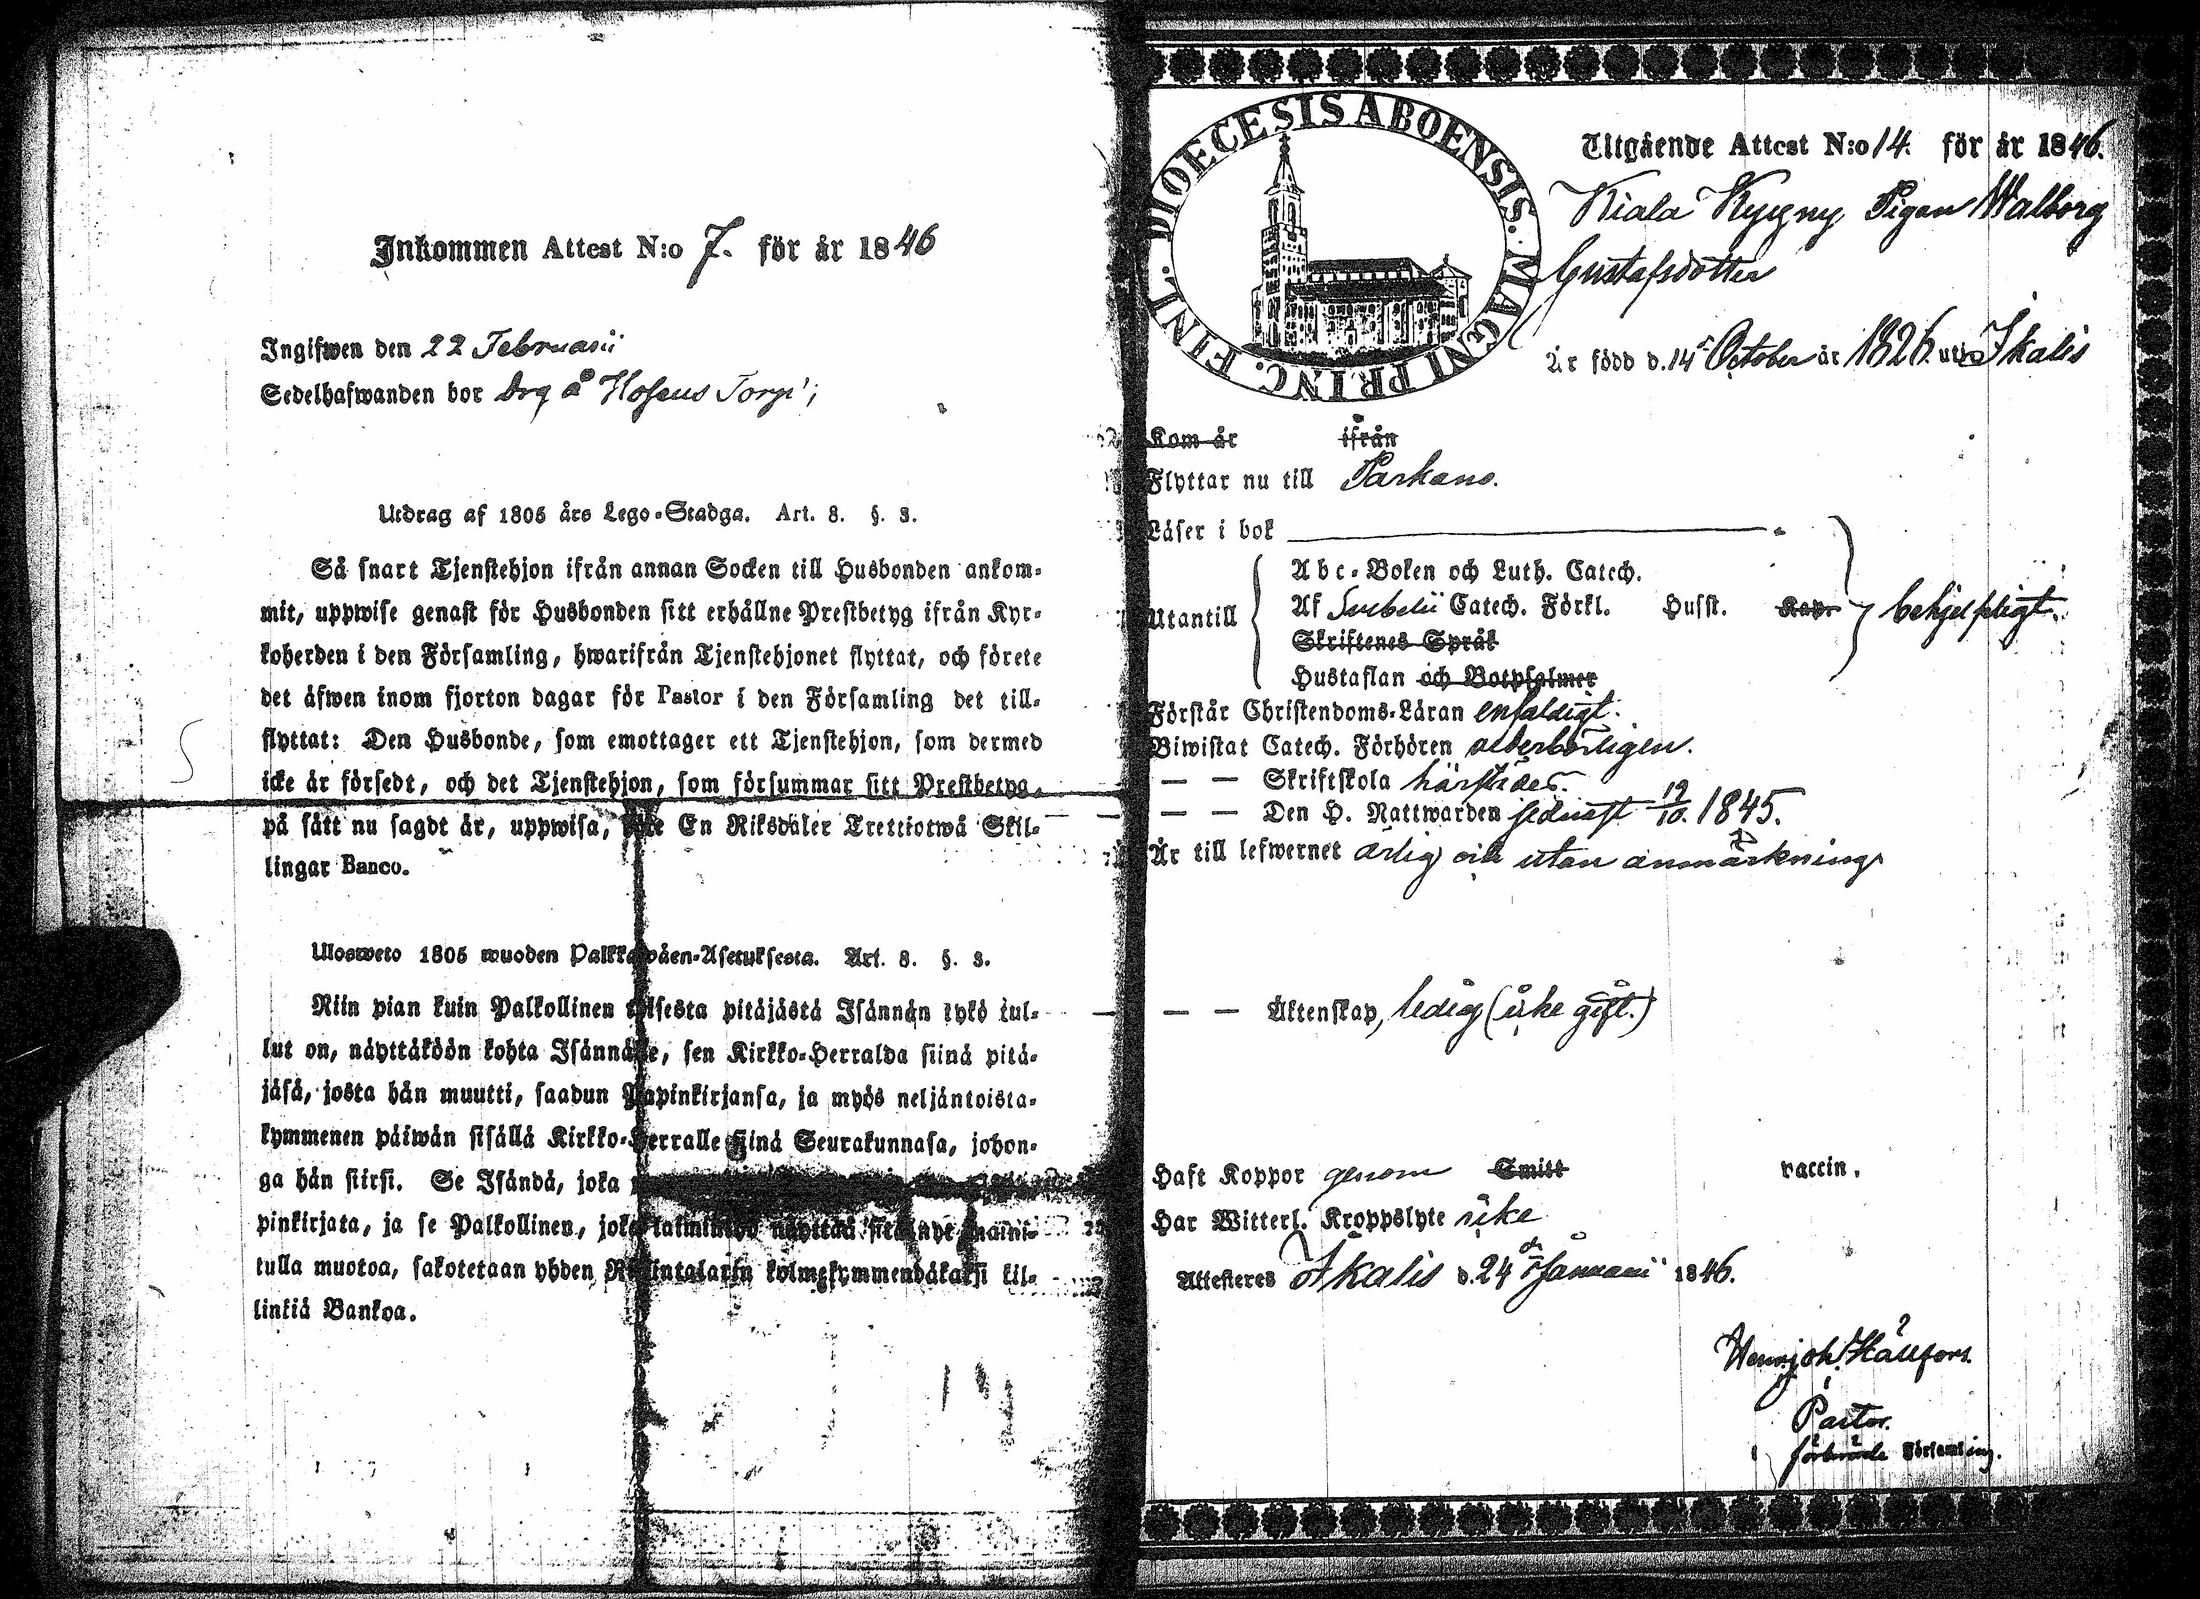 Inkommen Attest N:o 7. för år 1846
Ingifwen den 22 Februarii
Sedelhafwanden bor Drg å
Utdrag af 1805 års Lego-Stadga. Art. 8. §. 3.
Så snart Tjenstehjon ifrån annan Socken till Husbonden ankom-
mit, uppwise genast för Husbonden sitt erhållne Prestbetyg ifrån Kyr-
koherden i den Församling, hwarifrån Tjenstehjonet flyttat, och förete
det äfwen inom fjorton dagar för Pastor i den Församling det till-
flyttat: Den Husbonde, som emottager ett Tjenstehjon, som dermed
icke är försedt, och det Tjenstehjon, som försummar sitt Prestbetyg,
på sätt nu sagdt är, uppwisa, En Riksdaler Trettiotwå Skil-
lingar Banco.
Ulosweto 1805 wuoden Palkkawäen-Asetuksesta. Art. 8. §. 3.
Niin pian kuin Palkollinen toisesta pitäjästä Isännän tykö tul-
lut on, näyttäköön kohta Isännälle, sen Kirkko-Herralda siinä pitä-
jäsä, josta hän muutti, saadun Papinkirjansa, ja myös neljäntoista-
kymmenen päiwän sisällä Kirkko-Herralle siinä Seurakunnasa, johon-
ga hän siirsi. Se Isändä, joka
pinkirjata, ja se Palkollinen, joka laiminlyö näyttää sitä nyt maini-
tulla muotoa, sakotetaan yhden Riksintalarin kolmekymmendäkaksi kil-
linkiä Bankoa.
DIOECESIS ABOENSIS. MAGNI PRINC. FINL.
Utgående Attest N:o 14. för år 1846.
Kiala Kyrgny Pigan Walborg
Gustafsdotter
Är född d. 14 October år 1826. uti Ikalis
Kom år ifrån
Flyttar nu till Parkano.
Läser i bok
Utantill
Abc-Boken och Luth. Catech.
Af Svebelii Catech. Förkl. Husst.
Skriftenes Språk
Hustaflan och Botpsalmer
behjelpligt.
Förstår Christendoms-Läran enfaldigt.
Biwistat Catech. Förhören wederbörligen.
— — Skriftskola härstädes.
— — Den H. Nattwarden sednast 19/10. 1845.
Är till lefwernet ärlig och utan anmärkning
— — Äktenskap, ledig (icke gift.)
Haft Koppor genom Smitt vaccin.
Har Witterl. Kroppslyte icke
Attesteras Ikalis d. 24 Januarii 1846.
Pastor.
Församling.